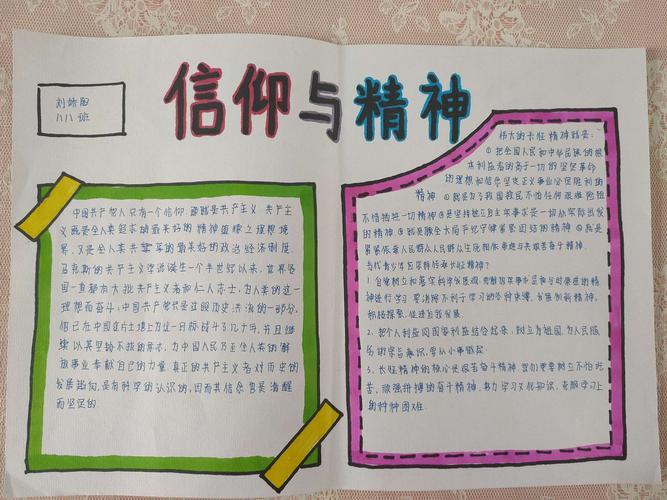 信仰与精神
刘 阳
八八班
中国共产党人只有一个信仰,那就是共产主义.共产主
义既是全人类 求的最美好的精神 境之理想境
界,又是全人类共 的最美好的政治经济制度.
马克斯的共产主义学说诞生一个半世纪以来,世界各
国一直都有大批共产主义者和仁人志士,为人类的这一
理想而奋斗;中国共产党就是这股历史洪流的一部分,
他已在中国这片土地上为这一目标奋斗了几十年,并且继
续以其坚韧不拔的 ,为中国人民乃至全人类的解
放事业奉献自己的力量.真正的共产主义者对历史的
发展趋向,是有科学的认识的,因而其信念也是清醒
而坚定的
伟大的长征精神就是:
①把全国人民和中华民族的根
本利益看的高于一切的坚定革命
的理想和信念坚定正义事业必定胜利的
精神 ②就是为了救国救民不怕任何艰难险阻
不惜牺牲一切精神③是坚持独立自主实事求是一切从实际出发
的精神 ④就是顾全大局严守纪律紧密团结的精神 ⑤就是
紧紧依靠人民群众人民群众生死相依患难与共艰苦奋斗精神.
当代青少年应怎样发扬长征精神?
1.自觉树立和落实科学发展观,
神进行学习,要消除不利于学习的各种 ,发扬创新精神,
积极探索,促进自我发展.
2.把个人利益同国家利益结合起来,树立为祖国,为人民服
务的学习意识,要从小事做起.
3.长征精神的核心是艰苦奋斗精神,我们更要树立不怕吃
苦,顽强拼搏的奋斗精神,努力学习文化知识,克服学习上
的种种困难.